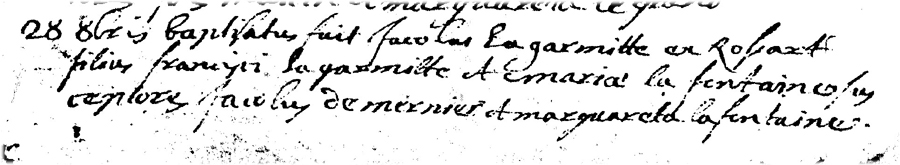 28 8bris baptisatus fuit Jacobus la garmitte en Rosart
filius francisci la garmitte et maria la fontaine sus
ceptores Jacobus demernier et marguareta lafontaine.